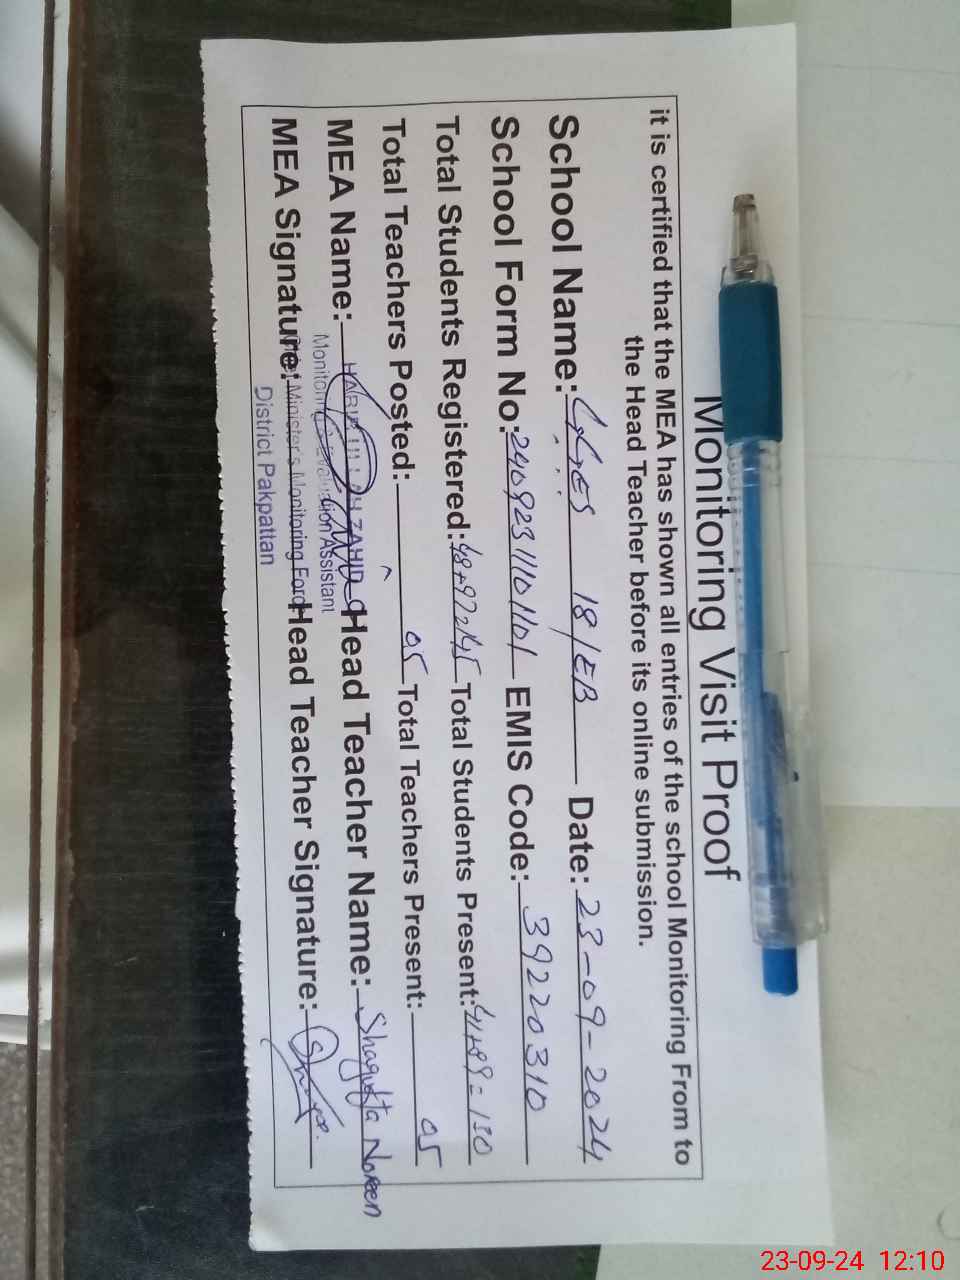 Monitoring Visit Proof
it is certified that the MEA has shown all entries of the school Monitoring From to
the Head Teacher before its online submission.
School Name: GGES 18/EB Date: 23-09-2024
School Form No: 24092311101101 EMIS Code: 39220310
Total Students Registered: 48+97=145 Total Students Present: 41+89=130
Total Teachers Posted: 05 Total Teachers Present: 05
MEA Name: ZAHID Head Teacher Name: Shagufta Noreen
Monitoring Assistant
MEA Signature: Minister's Monitoring Force Head Teacher Signature:
District Pakpattan
23-09-24 12:10